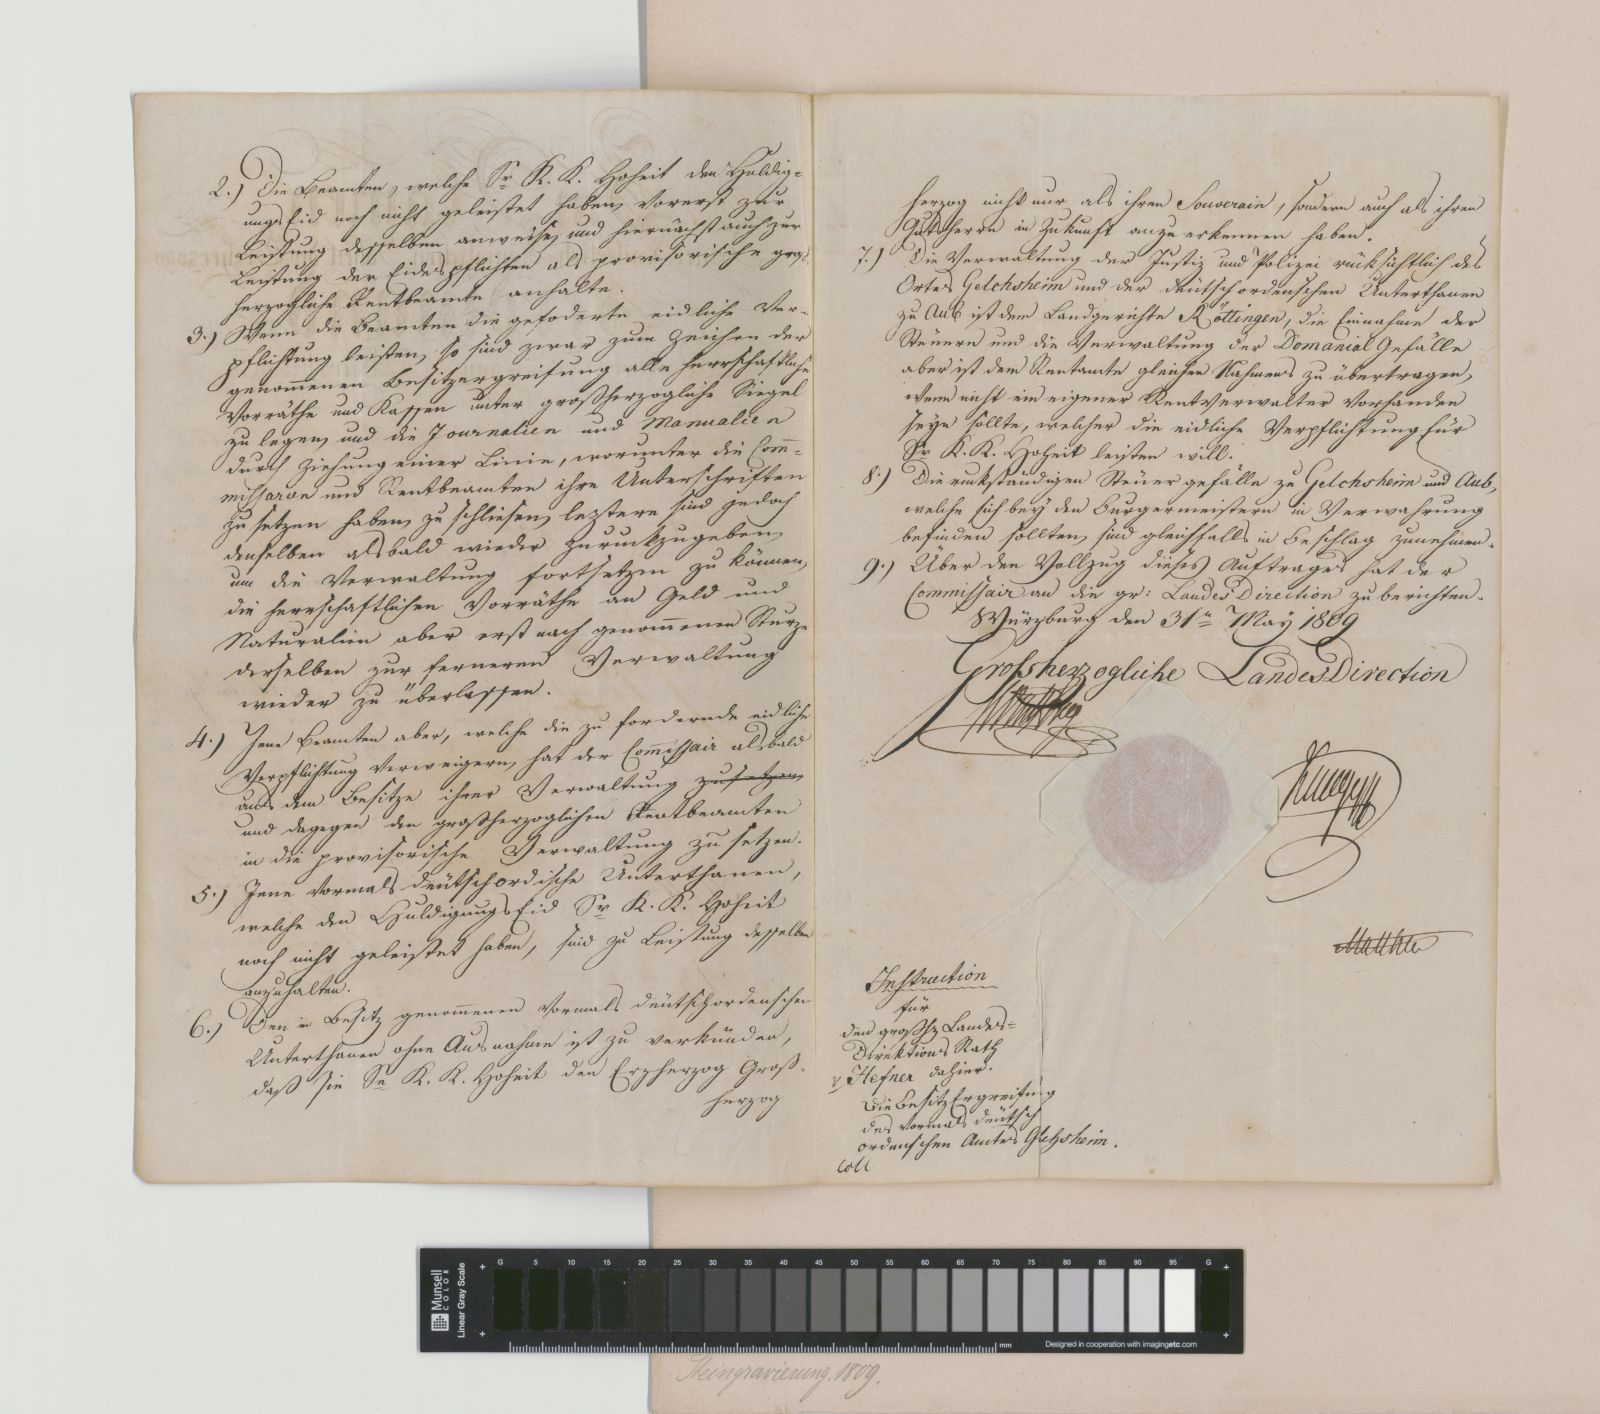 2.) Die Beamten, welche Sr K. K. Hoheit den Huldig-
ungs Eid noch nicht geleistet haben, vorerst zur
Leistung desselben anweise, und hiernächst auch zur
Leistung der Eidespflichten als provisorische gros-
herzogliche Rentbeamte anhalte.
3.) Wenn die Beamten die gefoderte eidliche Ver-
pflichtung leisten, so sind zwar zum Zeichen der
genom̅enen Besitzergreifung alle herrschaftliche
Vorräthe und Kassen unter großherzogliche Siegel
zu legen, und die Journalien und Manualien
durch Ziehung einer Linie, worunter die Com̅-
missaren und Rentbeamten ihre Unterschriften
zu setzen haben, zu schliesen, leztere sind jedoch
denselben alsbald wieder zurückzugeben,
um die Verwaltung fortsetzen zu können,
die herrschaftlichen Vorräthe an Geld und
Naturalien aber erst nach genom̅enen Sturze
derselben zur ferneren Verwaltung
wieder zu überlassen.
4.) Jene Beamten aber, welche die zu fordernde eidliche
Verpflichtung verweigern, hat der Com̅issair alsbald
aus dem Besitze ihrer Verwaltung zusetzen
und dagegen den großherzoglichen Rentbeamten
in die provisorische Verwaltung zu setzen.
5.) Jene vormals deutschordische Unterthanen,
welche den Huldigungs Eid Sr K. K. Hoheit
noch nicht geleistet haben, sind zu Leistung desselben
anzuhalten.
6.) Den in Besitz genom̅enen vormals deutschordenschen
Unterthanen ohne Ausnahme ist zu verkünden,
daß sie Se K. K. Hoheit den Erzherzog Groß-
herzog
herzog nicht nur als ihren Souverain, sondern auch als ihren
Gutsherrn in Zukunft anzuerkennen haben.
7.) Die Verwaltung der Justiz und Polizei rücksichtlich des
Ortes Gelchsheim und der deutschordenschen Unterthanen
zu Aub ist dem Landgerichte Röttingen, die Einnahme der
Steuern und die Verwaltung der Domanial Gefälle
aber ist dem Rentamte gleichen Nahmens zu übertragen,
wenn nicht ein eigener Rentverwalter vorhanden
seyn sollte, welcher die eidliche Verpflichtung für
Sr K. K. Hoheit leisten will.
8.) Die rückständigen Steuergefälle zu Gelchsheim und Aub,
welche sich bey den Burgermeistern in Verwahrung
befinden sollten, sind gleichfalls in Beschlag zunehmen.
9.) Über den Vollzug dieses Auftrages hat der
Com̅issair an die gr: LandesDirection zu berichten.
Würzburg den 31n May 1809
Großherzogliche LandesDirection
Instruction
für
den großhz Landes-
Direktions Rath
v Hefner dahier.
Die Besitz Ergreifung
des vormals deutsch
ordenschen Amtes Glchsheim.
Coll.
Munsell
COLOR
Linear Gray Scale
G 5 10 15 20 25 30 35 40 45 50 55 60 65 70 75 80 85 90 95 G
mm
Designed in cooperation with imagingetc.com
Steingravierung. 1809.